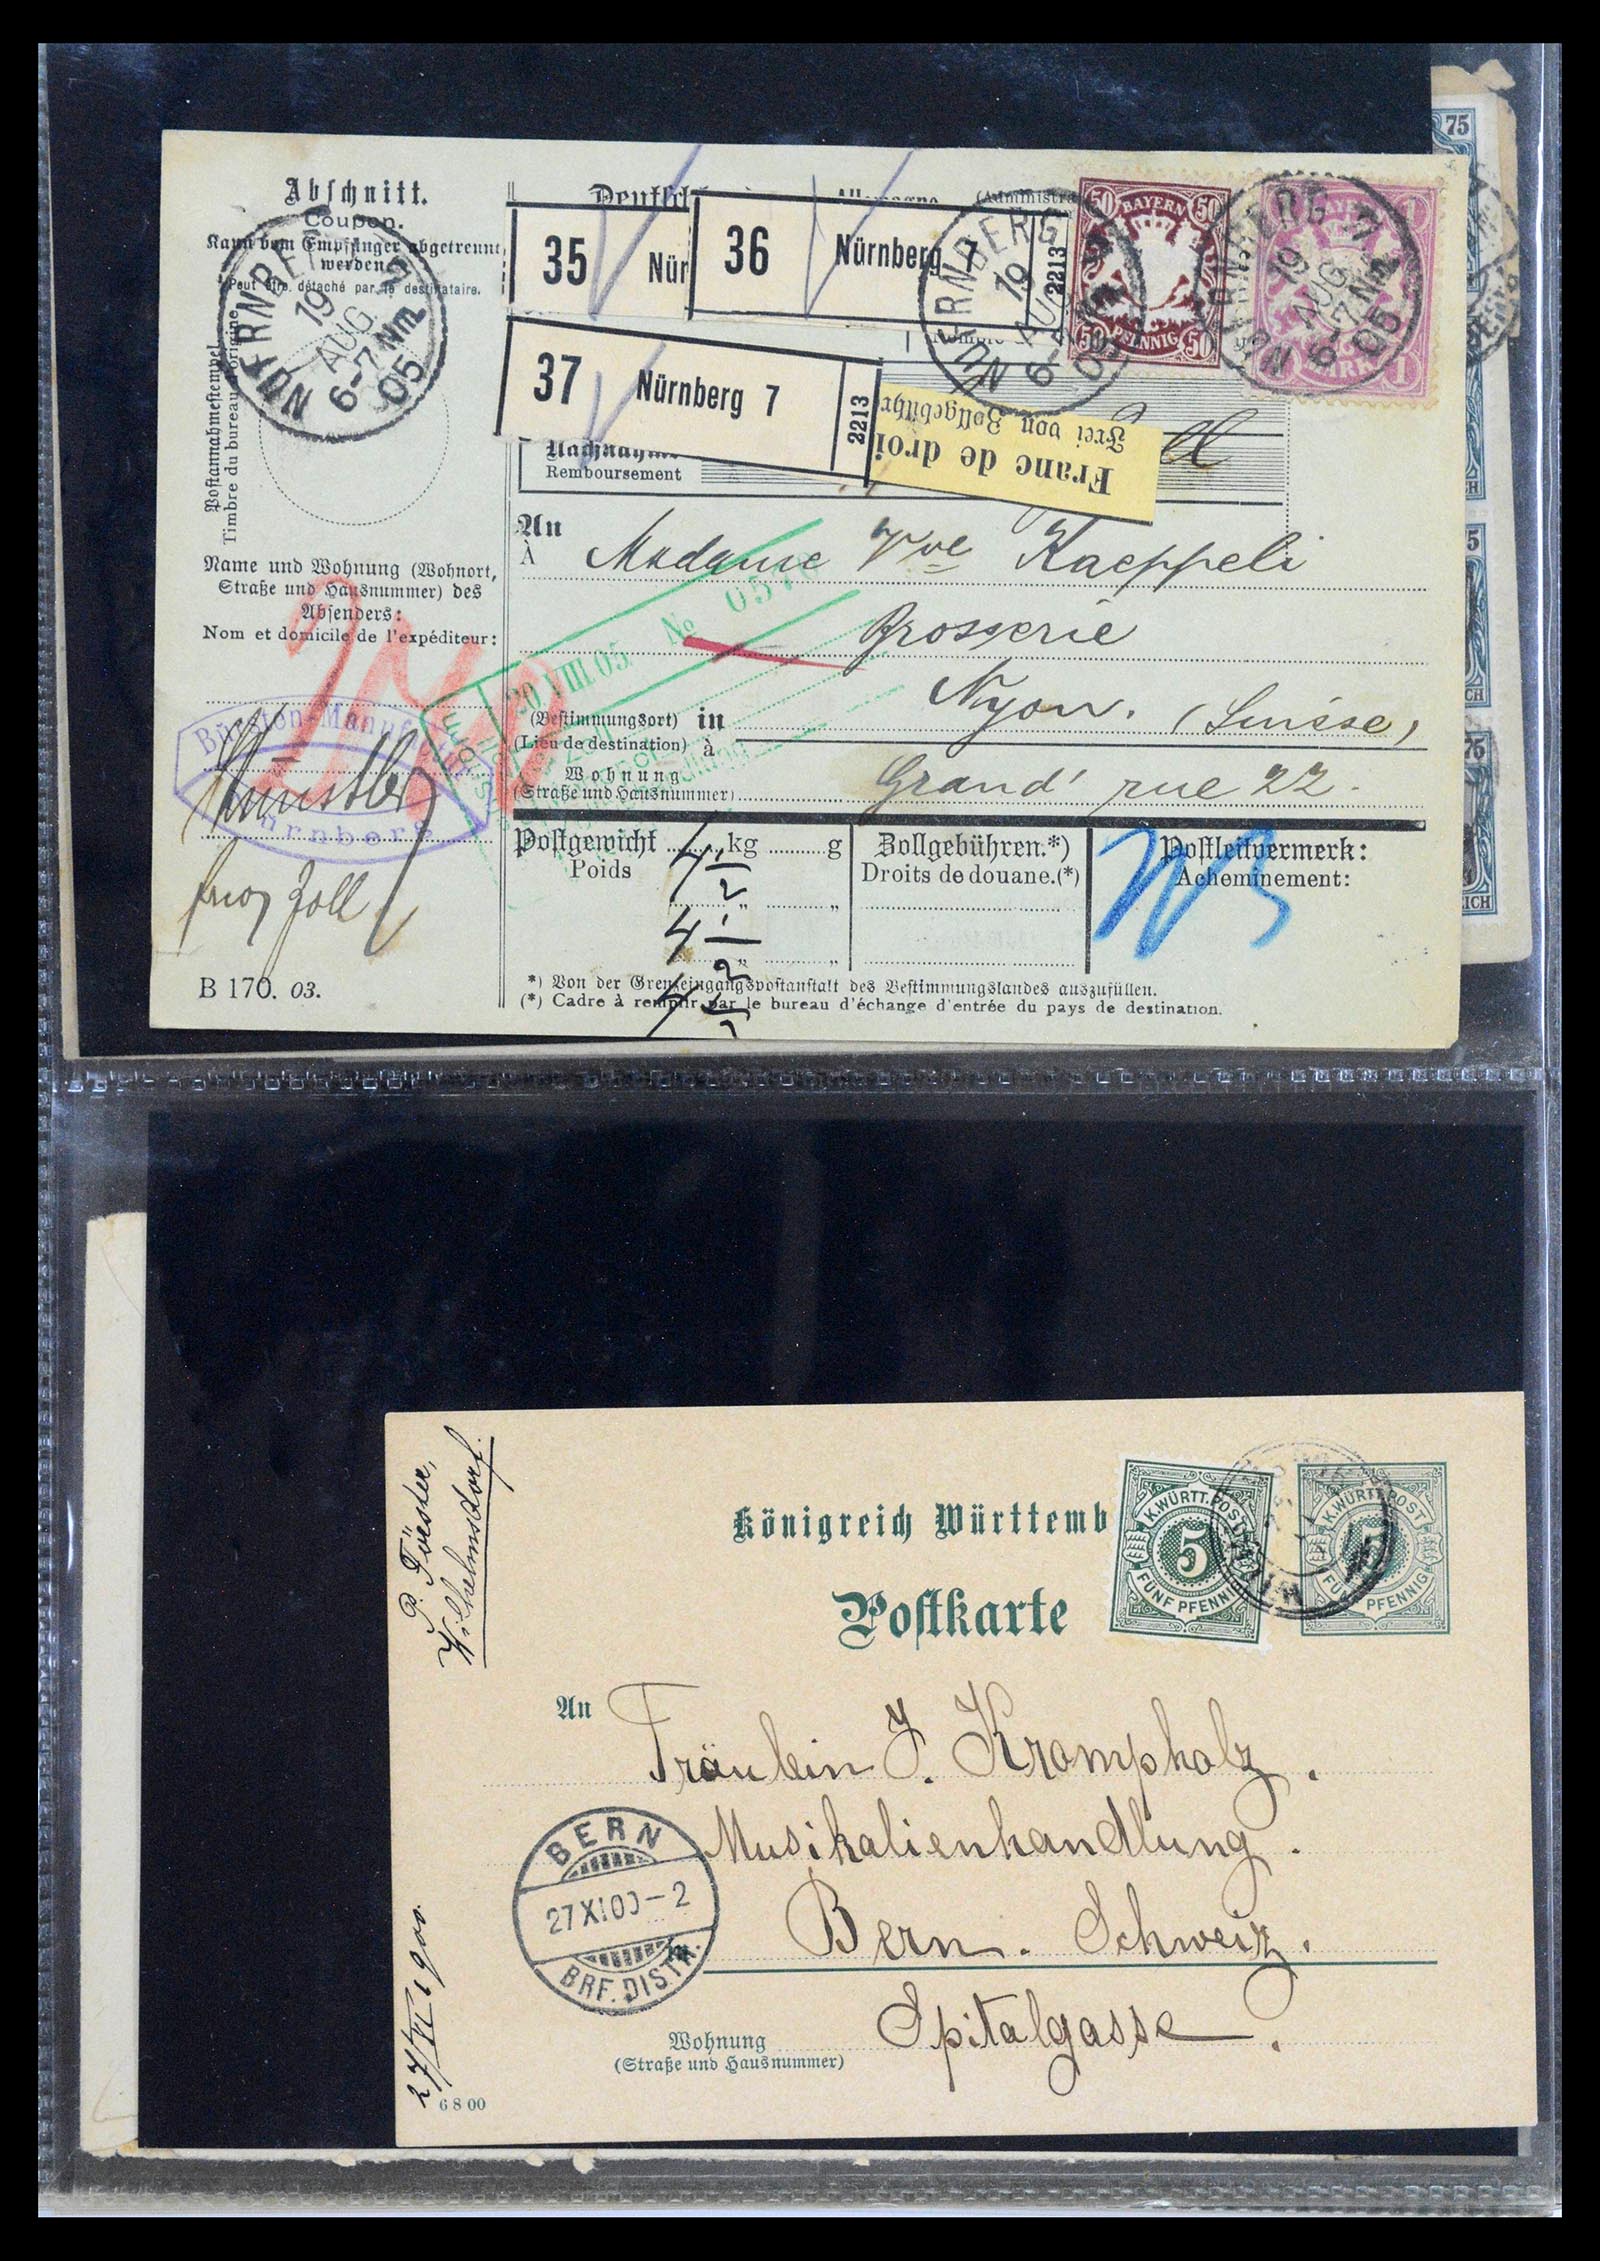 Abschnitt.
Coupon.
Kann vom Empfänger abgetrennt
werden.
Peut être détaché par le destinataire.
Postannahmestempel
Timbre du bureau d'origine
NÜRNBERG
19
AUG.
6-7 Nm
05
Name und Wohnung (Wohnort,
Straße und Hausnummer) des
Absenders:
Nom et domicile de l'expéditeur:
Nürnberg
franco Zoll
B 170. 03.
35 Nür
36 Nürnberg 7
2213
37 Nürnberg 7
2213
Franc de droi
Frei von Zollgebühr
50 BAYERN 50
50 PFENNIG 50
NÜRNBERG
19
NÜRNBERG 7
19
AUG.
6-7 Nm
05
1 MARK 1
Nachnahme
Remboursement
An
À
Madame Vve Kaeppeli
Brosserie
Nyon. (Suisse)
Grand' rue 22.
20 VIII 05 No
(Bestimmungsort) in
(Lieu de destination) à
Wohnung
(Straße und Hausnummer)
Postgewicht kg g
Poids
4 1/2
4 1/2
4 1/2
Zollgebühren.*)
Droits de douane.(*)
Postleitvermerk:
Acheminement:
*) Von der Grenzeingangspostanstalt des Bestimmungslandes auszufüllen.
(*) Cadre à remplir par le bureau d'échange d'entrée du pays de destination.
75
75
P. Förster,
Wilhelmsdorf.
Königreich Württemb
Postkarte
K.WÜRTT.POST
5
FÜNF PFENNIG
K.WÜRTT.POST
5
PFENNIG
An
Fräulein J. Krompholz.
Musikalienhandlung.
in
Bern. Schweiz.
Spitalgasse.
BERN
27 XI 00-2
BRF. DISTR.
Wohnung
(Straße und Hausnummer)
27/XI 1900.
6 8 00